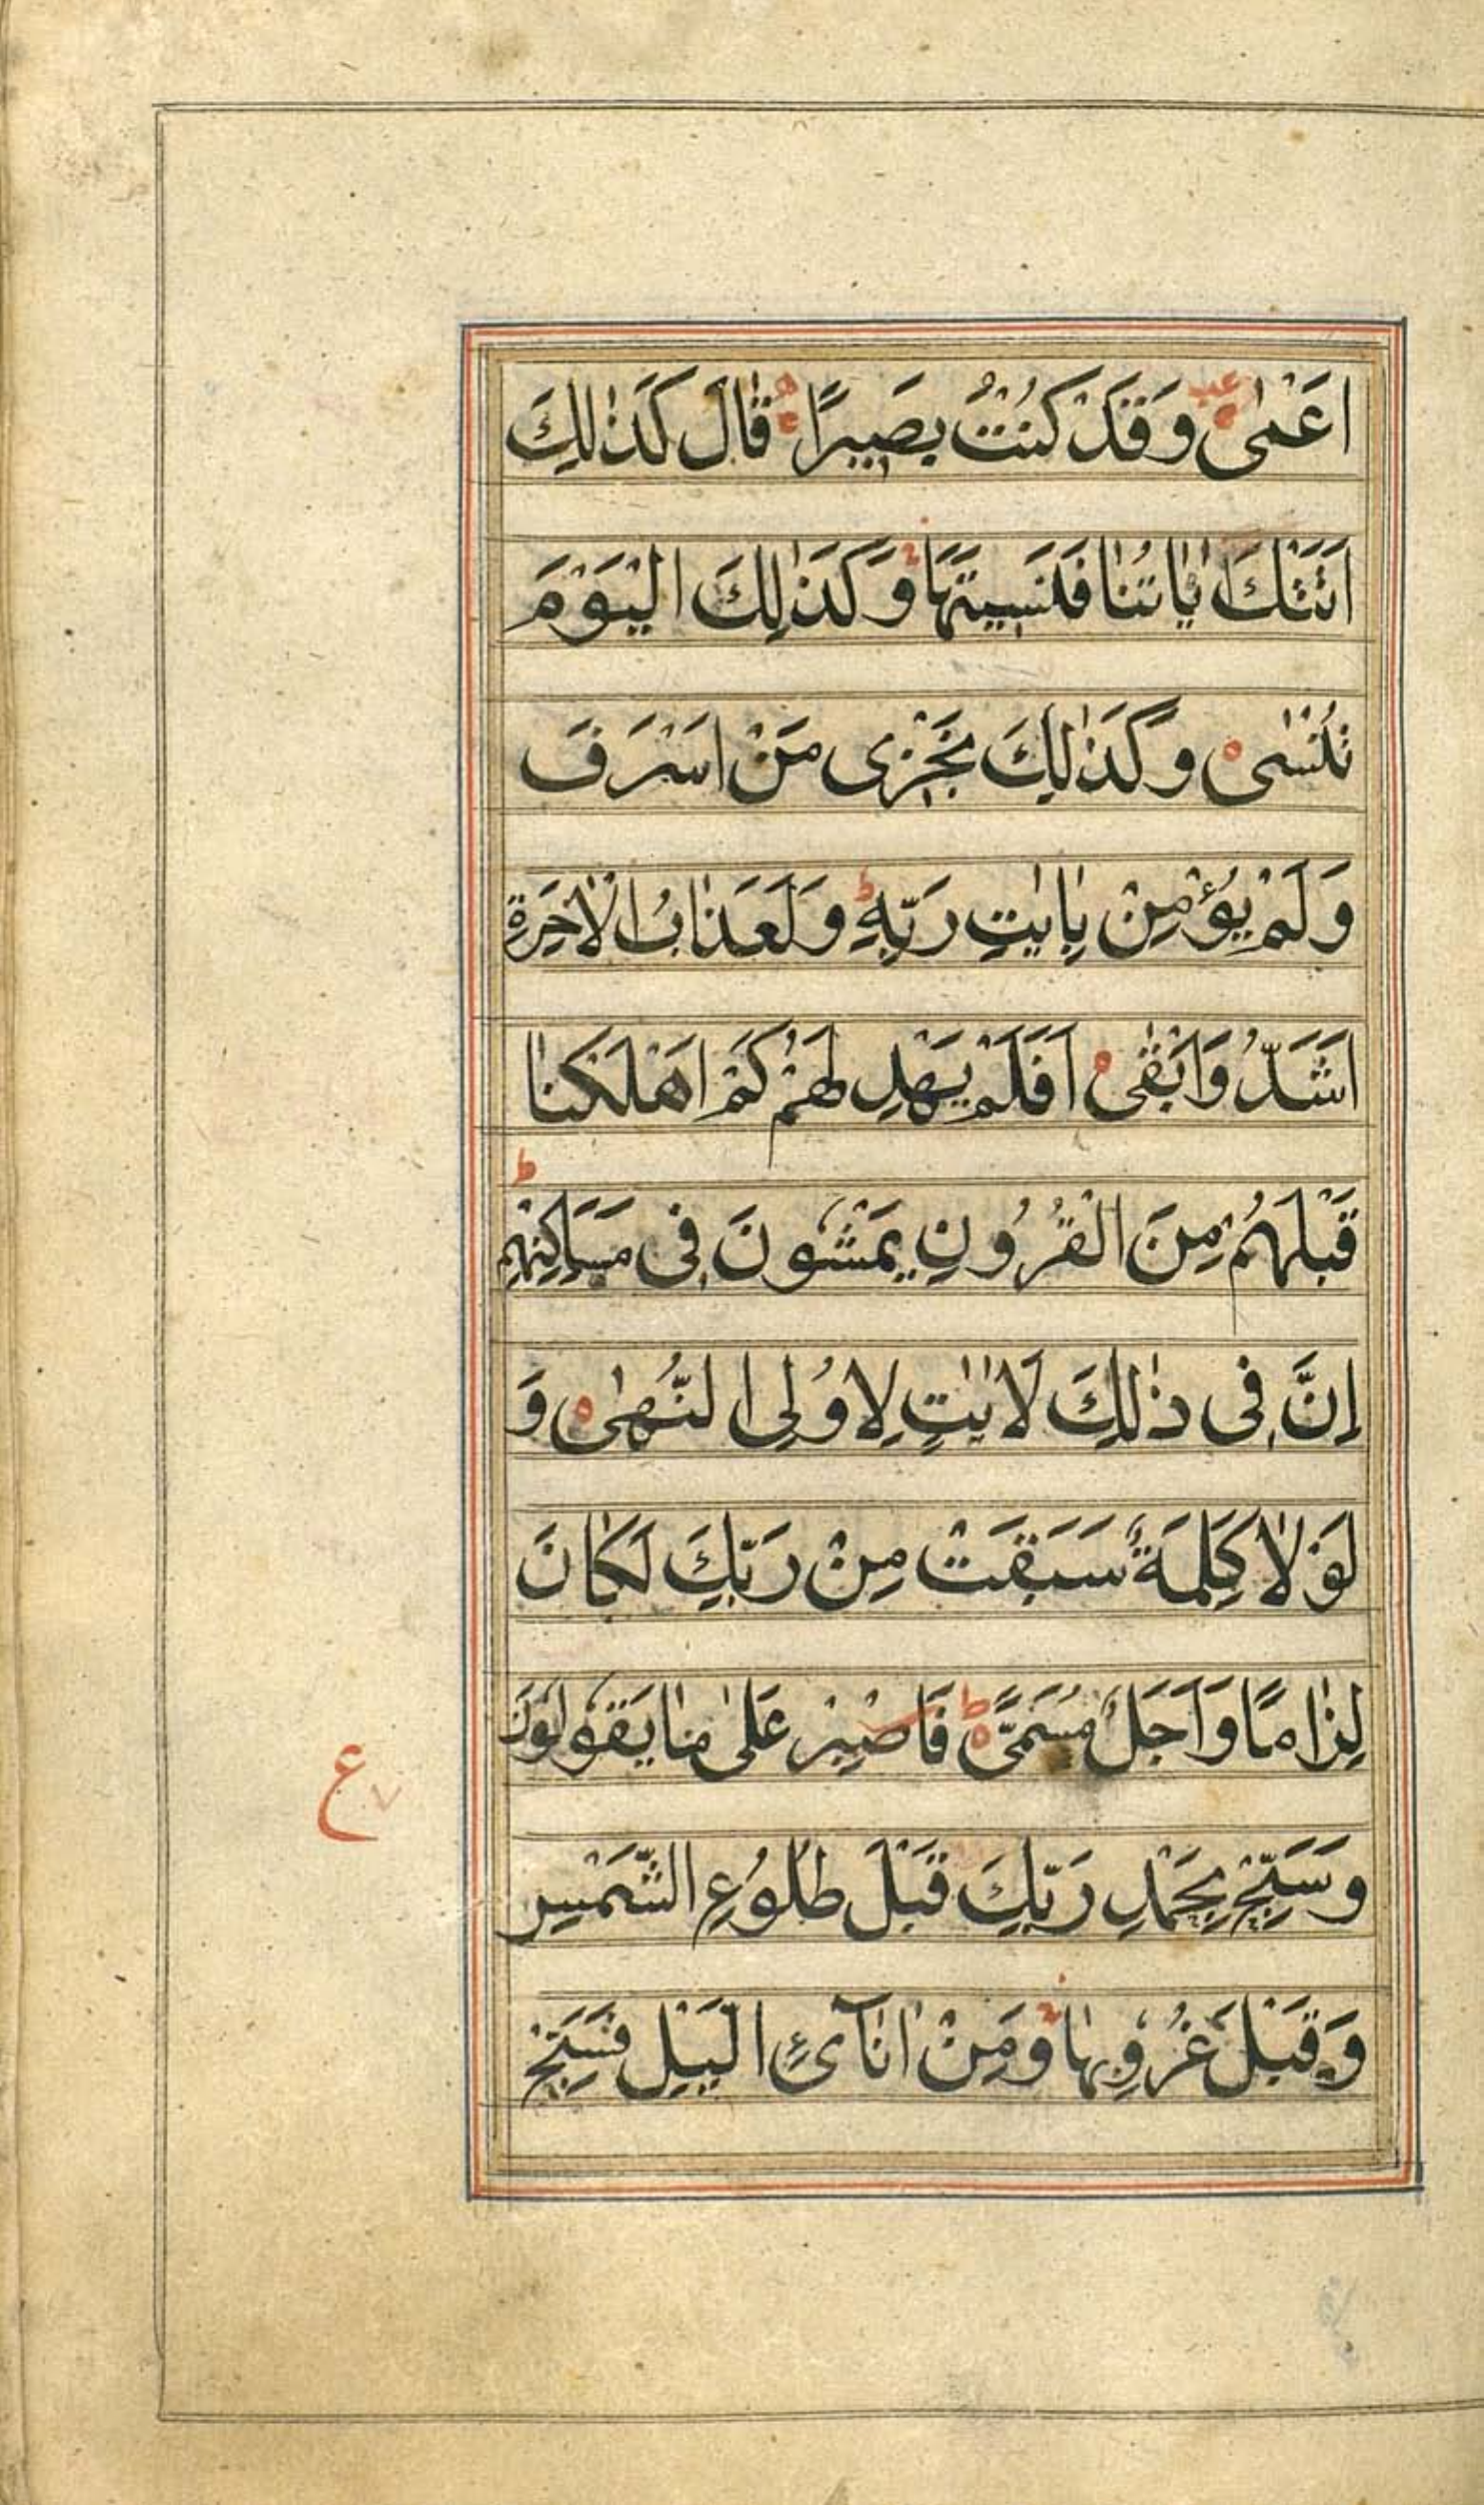 اَعْمٰى وَقَدْ كُنْتُ بَصِيْرًا قَالَ كَذٰلِكَ
اَتَتْكَ اٰيَاتُنَا فَنَسِيْتَهَا وَكَذٰلِكَ الْيَوْمَ
تُنْسٰى وَكَذٰلِكَ نَجْزِى مَنْ اَسْرَفَ
وَلَمْ يُؤْمِنْ بِاٰيٰتِ رَبِّهٖ ط وَلَعَذَابُ الْاٰخِرَةِ
اَشَدُّ وَاَبْقٰى اَفَلَمْ يَهْدِ لَهُمْ كَمْ اَهْلَكْنَا
قَبْلَهُمْ مِنَ الْقُرُوْنِ يَمْشُوْنَ فِى مَسَاكِنِهِمْ ط
اِنَّ فِى ذٰلِكَ لَاٰيٰتٍ لِاُولِى النُّهٰى وَ
لَوْلَا كَلِمَةٌ سَبَقَتْ مِنْ رَبِّكَ لَكَانَ
لِزَامًا وَاَجَلٌ مُسَمًّى ط فَاصْبِرْ عَلٰى مَا يَقُوْلُوْنَ
وَسَبِّحْ بِحَمْدِ رَبِّكَ قَبْلَ طُلُوْعِ الشَّمْسِ
وَقَبْلَ غُرُوْبِهَا وَمِنْ اٰنَآئِ الَّيْلِ فَسَبِّحْ
ع ٧